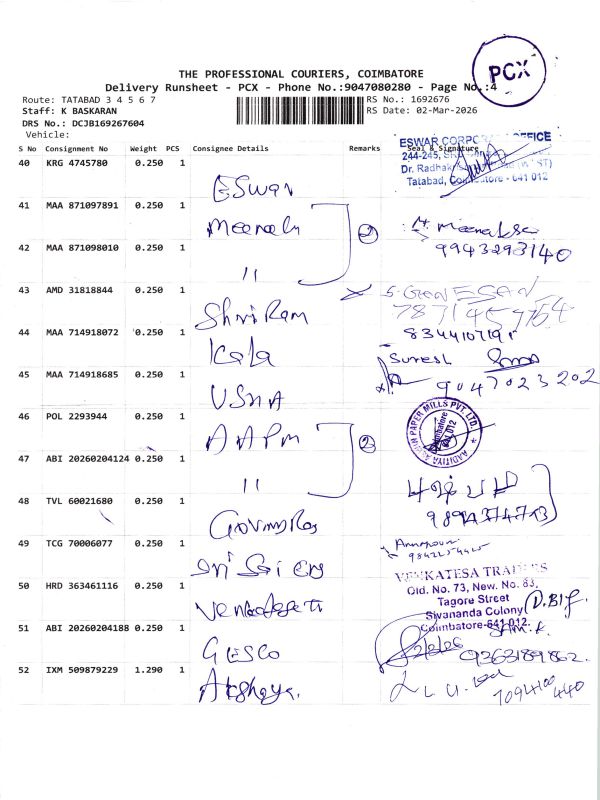 PCX
THE PROFESSIONAL COURIERS, COIMBATORE
Delivery Runsheet - PCX - Phone No.:9047080280 - Page No.:4
Route: TATABAD 3 4 5 6 7
RS No.: 1692676
Staff: K BASKARAN
RS Date: 02-Mar-2026
DRS No.: DCJB169267604
Vehicle:
S No Consignment No Weight PCS Consignee Details Remarks Seal & Signature
ESWAR CORPORATE OFFICE
244-245,
Dr. Radhak
Tatabad, Coimbatore - 641 012
40 KRG 4745780 0.250 1 Eswar
41 MAA 871097891 0.250 1 Meenaly 2
9943293140
42 MAA 871098010 0.250 1 "
43 AMD 31818844 0.250 1 Shri Ram S. GANESAN
44 MAA 714918072 0.250 1 Kala
Suresh
45 MAA 714918685 0.250 1 USHA 9047023202
46 POL 2293944 0.250 1 AAPM 2
AADITYA PAPER MILLS PVT. LTD.
Coimbatore
641 012
47 ABI 20260204124 0.250 1 "
48 TVL 60021680 0.250 1
49 TCG 70006077 0.250 1 Sri Giery
Annapoorni
VENKATESA TRADERS
Old. No. 73, New. No. 83,
Tagore Street
Sivananda Colony
Coimbatore-641 012.
50 HRD 363461116 0.250 1
51 ABI 20260204188 0.250 1 GESCO 9363189862
52 IXM 509879229 1.290 1 Akshaya.
7094100440